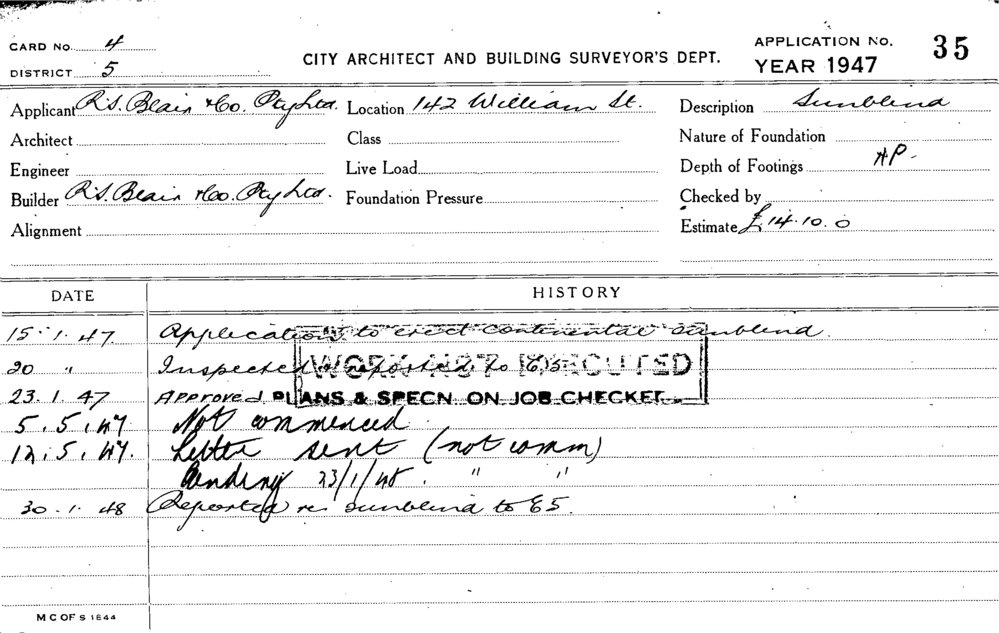 CARD No. 4
DISTRICT 5
CITY ARCHITECT AND BUILDING SURVEYOR'S DEPT.
APPLICATION No. 35
YEAR 1947
Applicant R.S. Blair & Co. Pty Ltd. Location 142 William St. Description Sunblind
Architect Class Nature of Foundation
Engineer Live Load Depth of Footings AP.
Builder R.S. Blair & Co. Pty Ltd. Foundation Pressure Checked by
Alignment Estimate £14.10.0
DATE HISTORY
15.1.47 Application to erect continental sunblind.
WORK NOT EXECUTED
20 " Inspected & reported to
23.1.47 Approved PLANS & SPECN. ON JOB CHECKET
5.5.47 Not commenced.
12.5.47. Letter sent (not comm)
Pending 23/1/48. " "
30.1.48 Reported re sunblind to E5.
M C OF S 1844